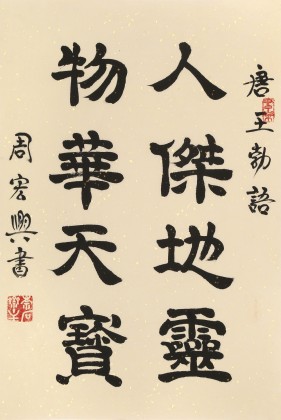 唐王勃語
人傑地靈
物華天寶
周宏興書